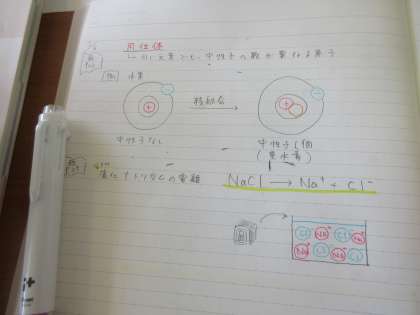 同位体
同じ元素でも、中性子の数が異なる原子
例 水素
中性子なし
中性子1個
(重水素)
塩化ナトリウムの電離
NaCl → Na⁺ + Cl⁻
Cl⁻ Na⁺ Cl⁻ Na⁺
Na⁺ Cl⁻ Na⁺ Cl⁻